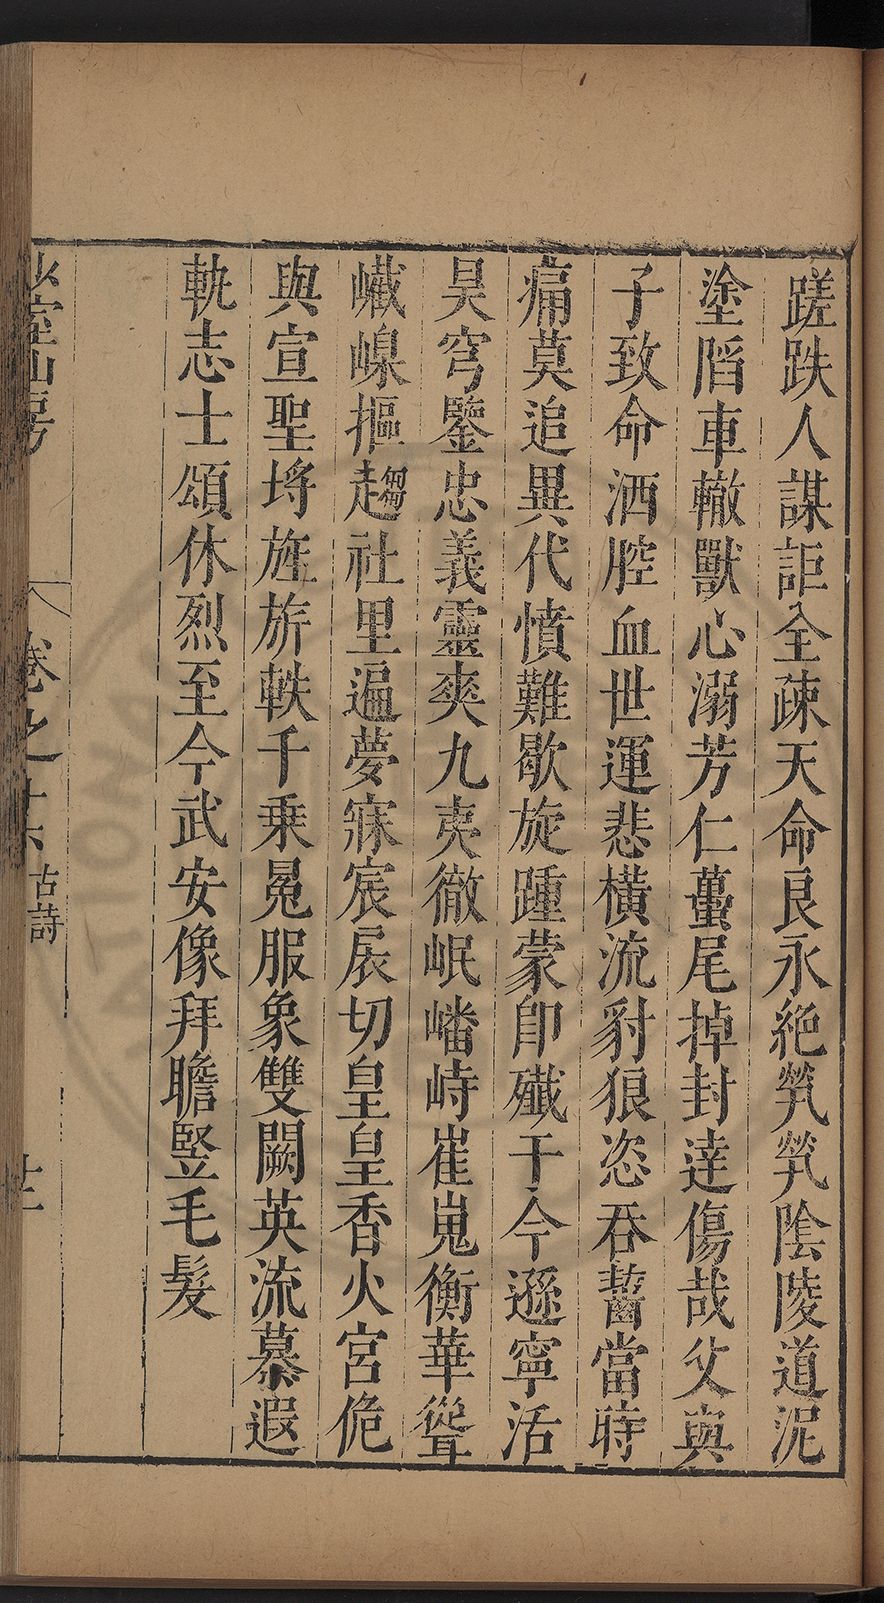 蹉跌人謀詎全疎天命良永絶煢煢陰陵道泥
塗陷車轍獸心溺芳仁蠆尾掉封達傷哉父與
子致命洒腔血世運悲橫流豺狼恣吞齧當時
痛莫追異代憤難歇旋踵蒙卽殲于今遜寧活
昊穹鑒忠義靈爽九夷徹岷嶓峙崔嵬衡華聳
巀嵲摳趨社里遍夢寐宸扆切皇皇香火宮佹
與宣聖埒旌旂軼千乗冕服象雙闕英流慕遐
軌志士頌休烈至今武安像拜瞻竪毛髮
少室山房
卷之十六
古詩
十二